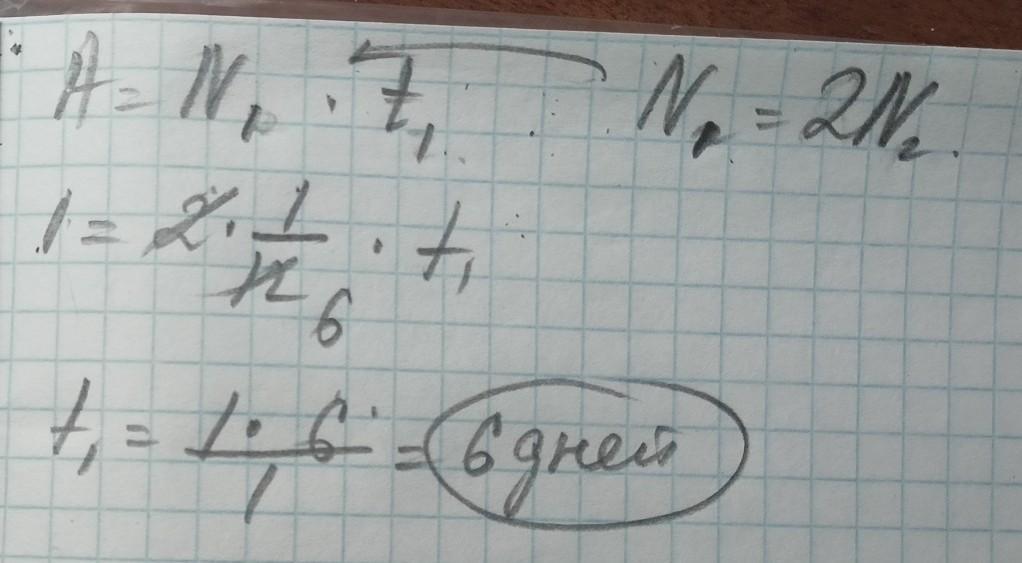 A = N₁ · t₁ N₁ = 2N₂.
1 = 2 · 1/12 6 · t₁
t₁ = 1 · 6/1 = 6 дней